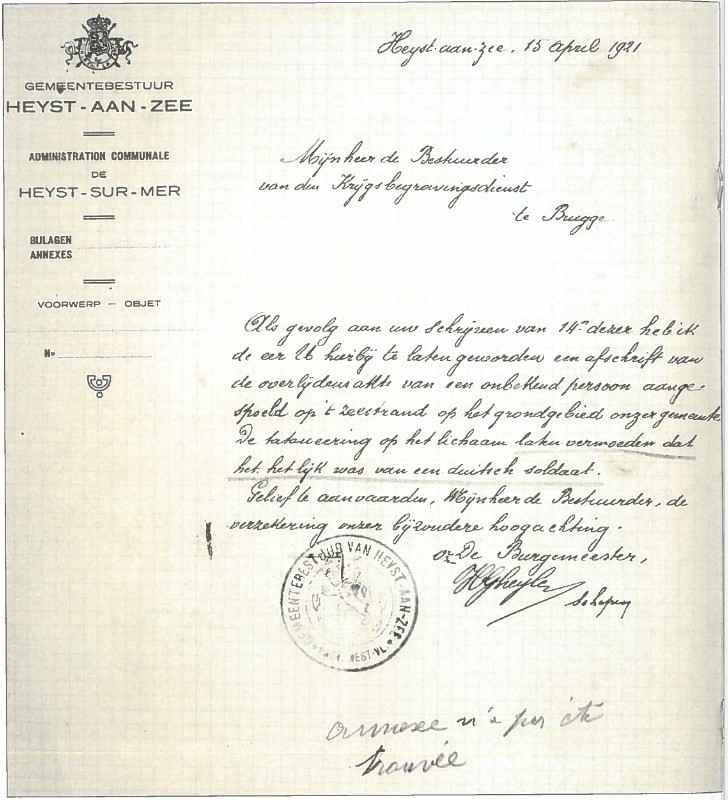 GEMEENTEBESTUUR
HEYST-AAN-ZEE
ADMINISTRATION COMMUNALE
DE
HEYST-SUR-MER
BIJLAGEN
ANNEXES
VOORWERP – OBJET
No
Heyst-aan-zee, 15 April 1921
Mijnheer de Bestuurder
van den Krijgsbegravingsdienst
te Brugge
Als gevolg aan uw schrijven van 14n dezer heb ik
de eer U hierbij te laten geworden een afschrift van
de overlijdensakte van een onbekend persoon aange-
spoeld op 't zeestrand op het grondgebied onzer gemeente
De tatoueering op het lichaam laten vermoeden dat
het het lijk was van een duitsch soldaat.
Gelief te aanvaarden, Mijnheer de Bestuurder, de
verzekering onzer bijzondere hoogachting.
De Burgemeester,
Schepen
GEMEENTEBESTUUR VAN HEYST-AAN-ZEE
WEST-VL.
annexe n'a pas été
trouvée